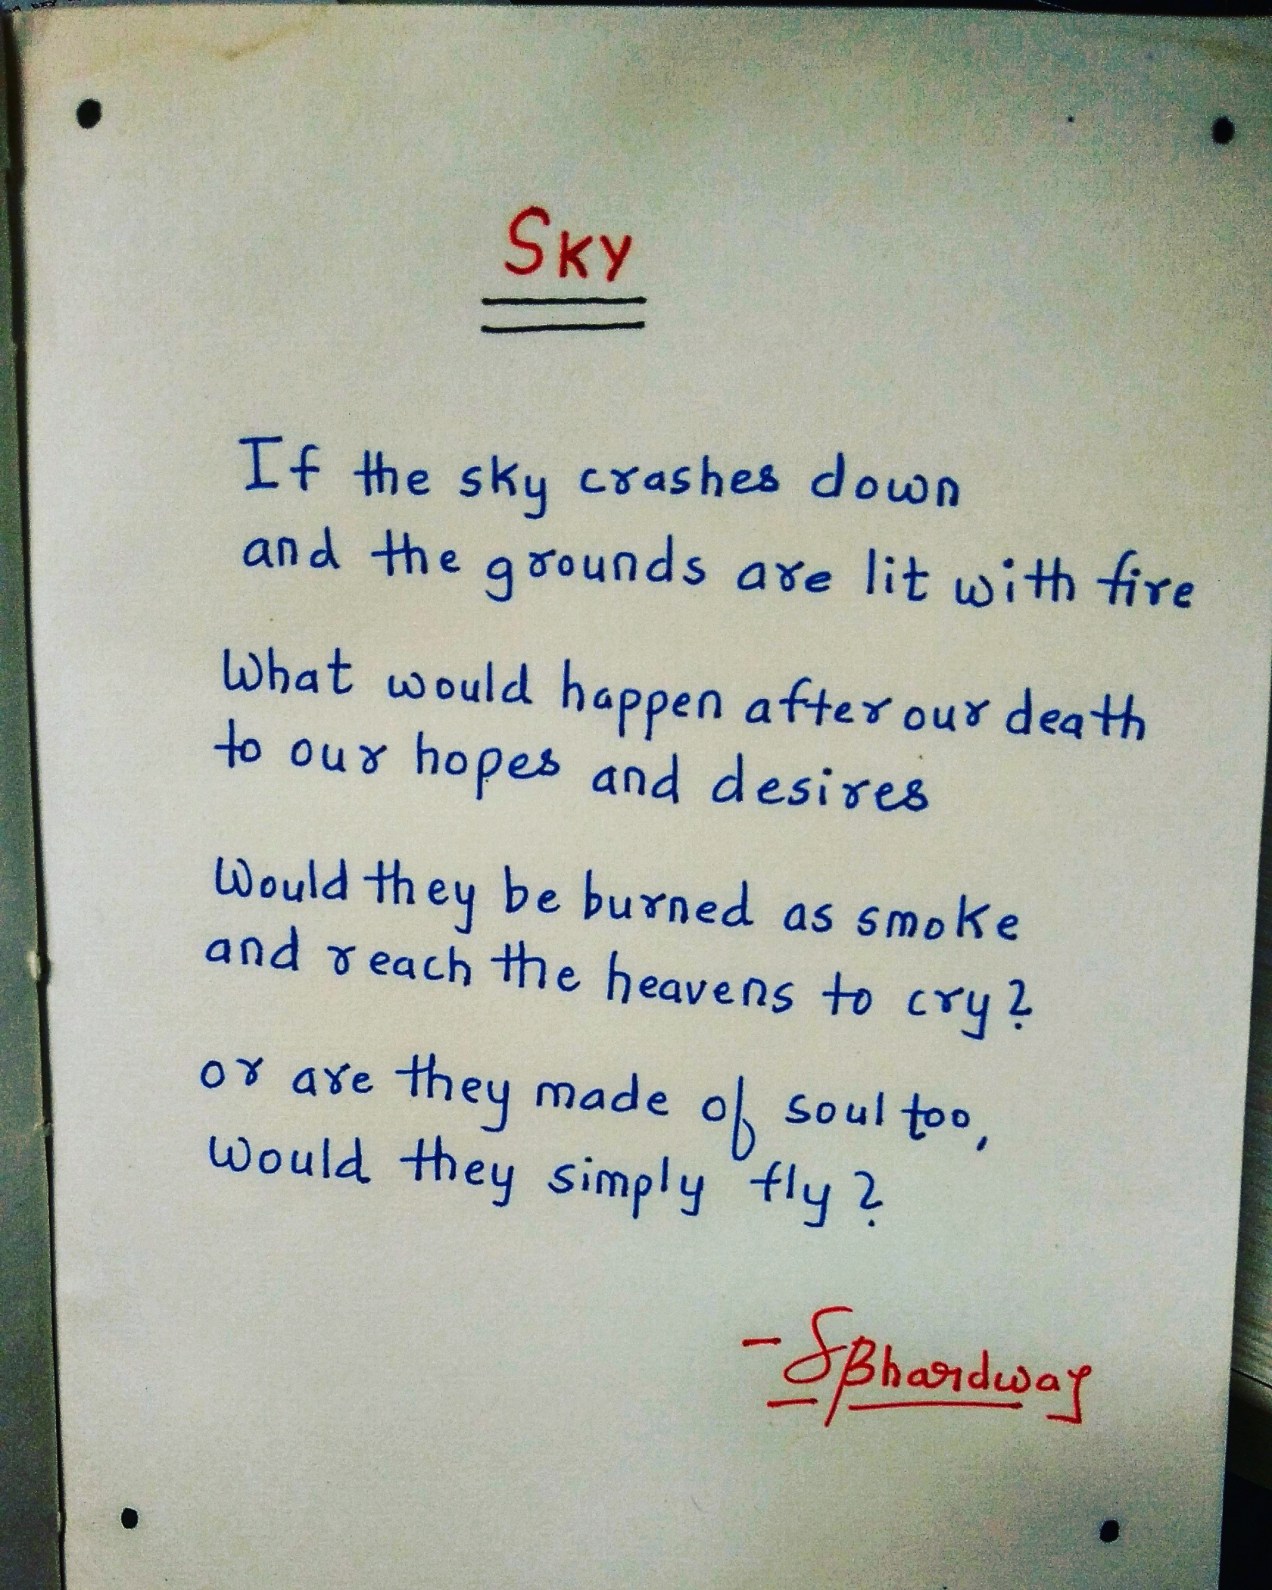 SKY
If the sky crashes down
and the grounds are lit with fire
What would happen after our death
to our hopes and desires
Would they be burned as smoke
and reach the heavens to cry?
or are they made of soul too,
Would they simply fly?
- SBhardwaj